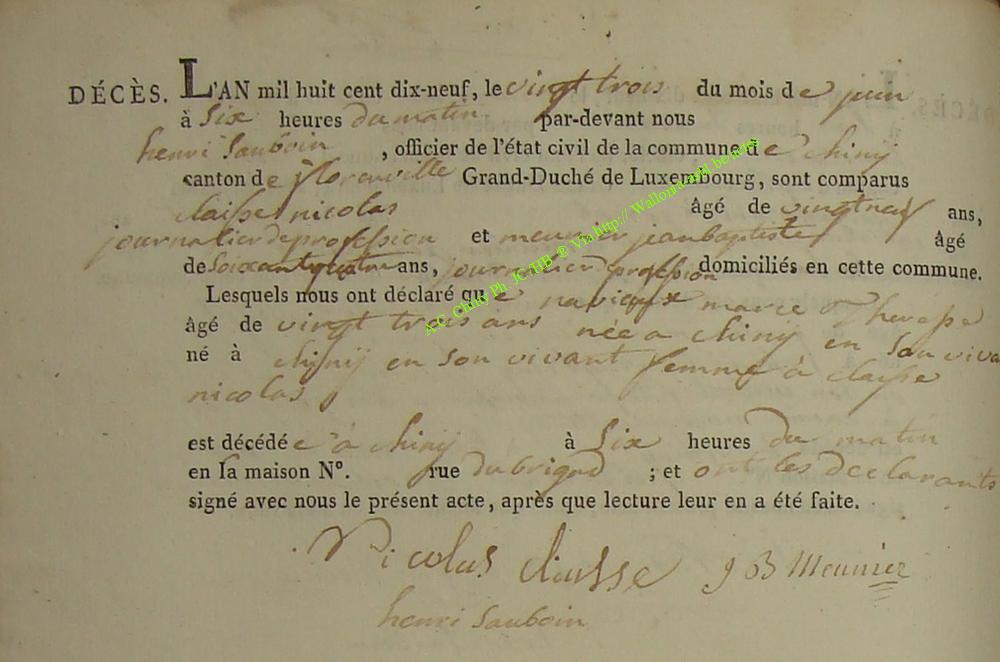 DÉCÈS. L'AN mil huit cent dix-neuf, le vingt trois du mois de juin
à Six heures du matin par-devant nous
henri Sauboin , officier de l'état civil de la commune de chinij
canton de florenville Grand-Duché de Luxembourg, sont comparus
claisse nicolas âgé de vingtneuf ans,
journalier de profession et meunier jean baptiste âgé
de soixante quatre ans, journalier de profession domiciliés en cette commune.
Lesquels nous ont déclaré que navieaux marie Therese
âgé de vingt trois ans née a chinij en son viva
né à chinij en son vivant femme à claisse
nicolas
est décédée à chinij à Six heures du matin
en la maison N°. rue du ; et ont les declarants
signé avec nous le présent acte, après que lecture leur en a été faite.
Nicolas claisse J B Meunier
henri Sauboin
A.C. Chiny Ph. JC/HB ® Via http:// Wallonia14.be